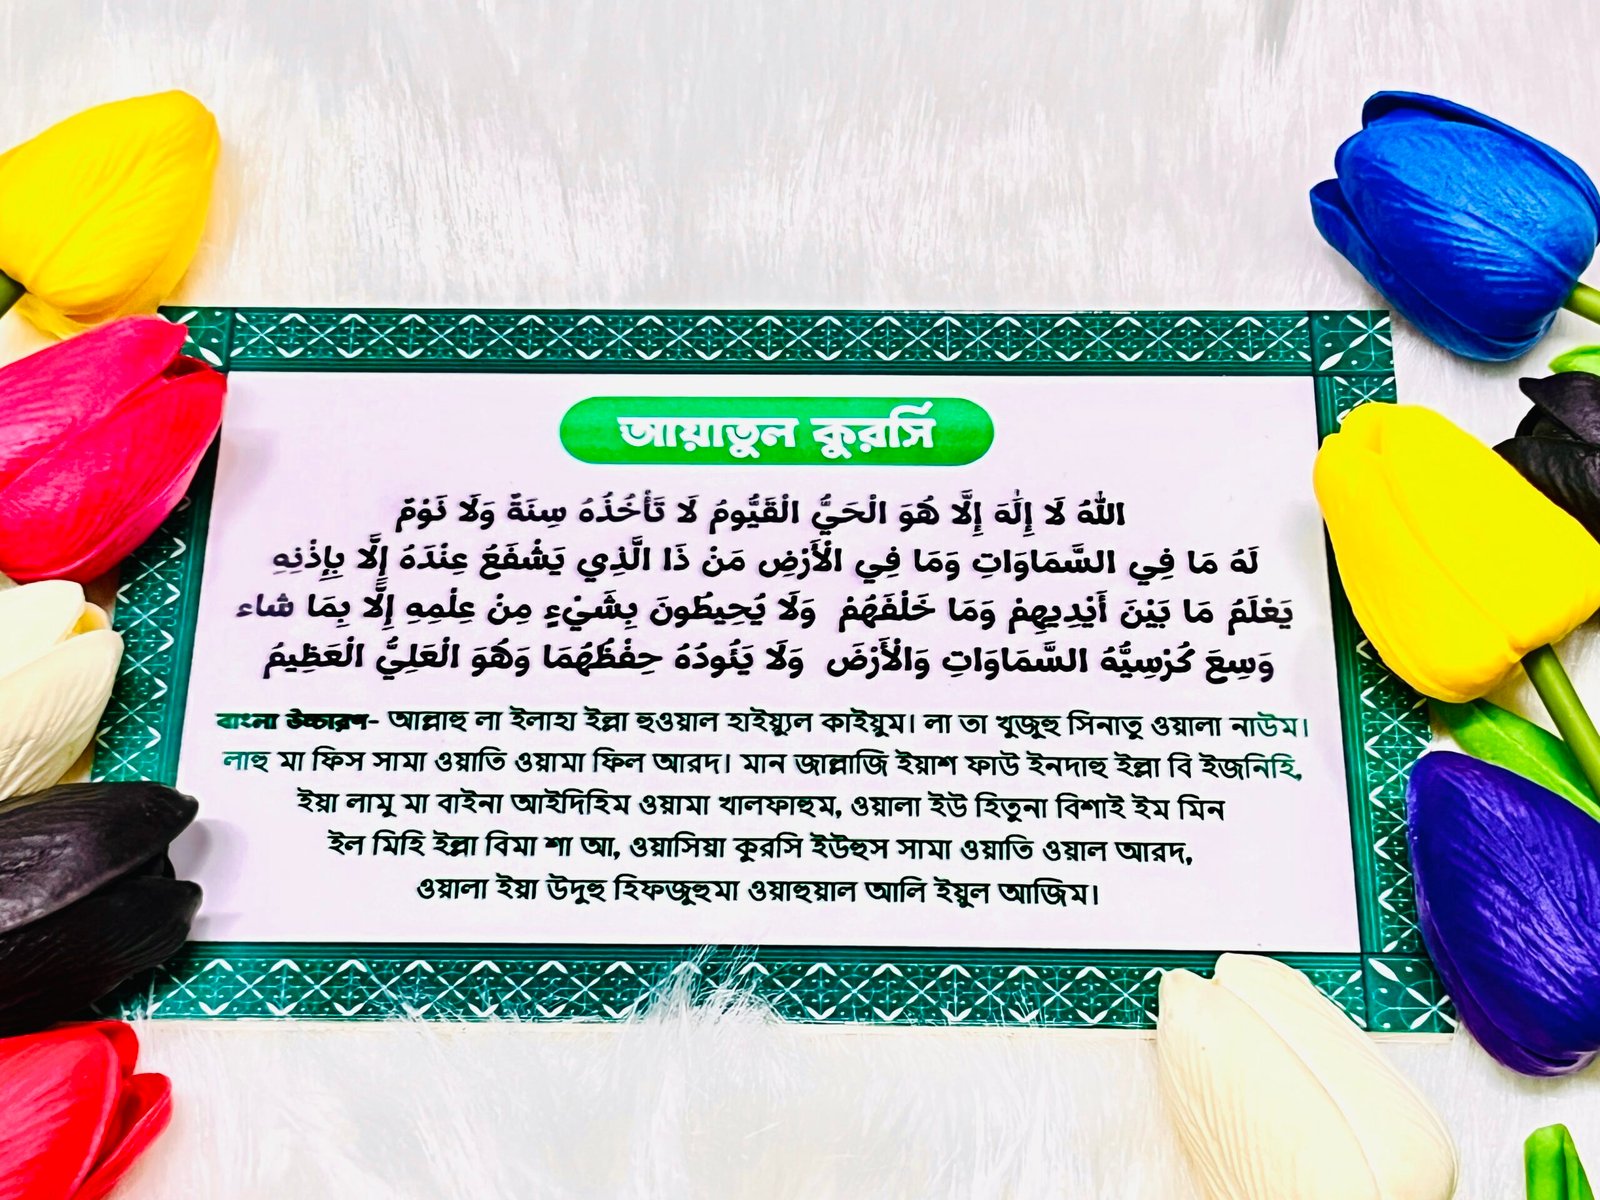 আয়াতুল কুরসি
اللَّهُ لَا إِلَٰهَ إِلَّا هُوَ الْحَيُّ الْقَيُّومُ لَا تَأْخُذُهُ سِنَةٌ وَلَا نَوْمٌ
لَهُ مَا فِي السَّمَاوَاتِ وَمَا فِي الْأَرْضِ مَنْ ذَا الَّذِي يَشْفَعُ عِنْدَهُ إِلَّا بِإِذْنِهِ
يَعْلَمُ مَا بَيْنَ أَيْدِيهِمْ وَمَا خَلْفَهُمْ وَلَا يُحِيطُونَ بِشَيْءٍ مِنْ عِلْمِهِ إِلَّا بِمَا شاء
وَسِعَ كُرْسِيُّهُ السَّمَاوَاتِ وَالْأَرْضَ وَلَا يَئُودُهُ حِفْظُهُمَا وَهُوَ الْعَلِيُّ الْعَظِيمُ
বাংলা উচ্চারণ- আল্লাহু লা ইলাহা ইল্লা হুওয়াল হাইয়্যুল কাইয়ুম। লা তা খুজুহু সিনাতু ওয়ালা নাউম।
লাহু মা ফিস সামা ওয়াতি ওয়ামা ফিল আরদ। মান জাল্লাজি ইয়াশ ফাউ ইনদাহু ইল্লা বি ইজনিহি,
ইয়া লামু মা বাইনা আইদিহিম ওয়ামা খালফাহুম, ওয়ালা ইউ হিতুনা বিশাই ইম মিন
ইল মিহি ইল্লা বিমা শা আ, ওয়াসিয়া কুরসি ইউহুস সামা ওয়াতি ওয়াল আরদ,
ওয়ালা ইয়া উদুহু হিফজুহুমা ওয়াহুয়াল আলি ইয়ুল আজিম।